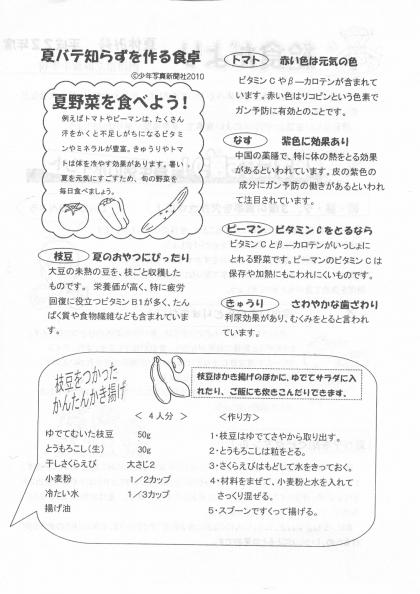 夏バテ知らずを作る食卓
©少年写真新聞社2010
夏野菜を食べよう！
例えばトマトやピーマンは、たくさん
汗をかくと不足しがちになるビタミ
ンやミネラルが豊富。きゅうりやトマ
トは体を冷やす効果があります。暑い
夏を元気にすごすため、旬の野菜を
毎日食べましょう。
枝豆 夏のおやつにぴったり
大豆の未熟の豆を、枝ごと収穫した
ものです。 栄養価が高く、特に疲労
回復に役立つビタミンB1が多く、たん
ぱく質や食物繊維なども含まれていま
す。
トマト 赤い色は元気の色
ビタミンCやβ―カロテンが含まれて
います。赤い色はリコピンという色素で
ガン予防に有効とのことです。
なす 紫色に効果あり
中国の薬膳で、特に体の熱をとる効果
があるといわれています。皮の紫色の
成分にガン予防の働きがあるといわれ
て注目されています。
ピーマン ビタミンCをとるなら
ビタミンCとβ―カロテンがいっしょに
とれる野菜です。ピーマンのビタミンCは
保存や加熱にもこわれにくいものです。
きゅうり さわやかな歯ざわり
利尿効果があり、むくみをとると言われ
ています。
枝豆をつかった
かんたんかき揚げ
枝豆はかき揚げのほかに、ゆでてサラダに入
れたり、ご飯にも炊きこんだりできます。
＜ 4人分 ＞
ゆでてむいた枝豆 50g
とうもろこし（生） 30g
干しさくらえび 大さじ2
小麦粉 1／2カップ
冷たい水 1／3カップ
揚げ油
＜作り方＞
1・枝豆はゆでてさやから取り出す。
2・とうもろこしは粒をとる。
3・さくらえびはもどして水をきっておく。
4・材料をまぜて、小麦粉と水を入れて
さっくり混ぜる。
5・スプーンですくって揚げる。